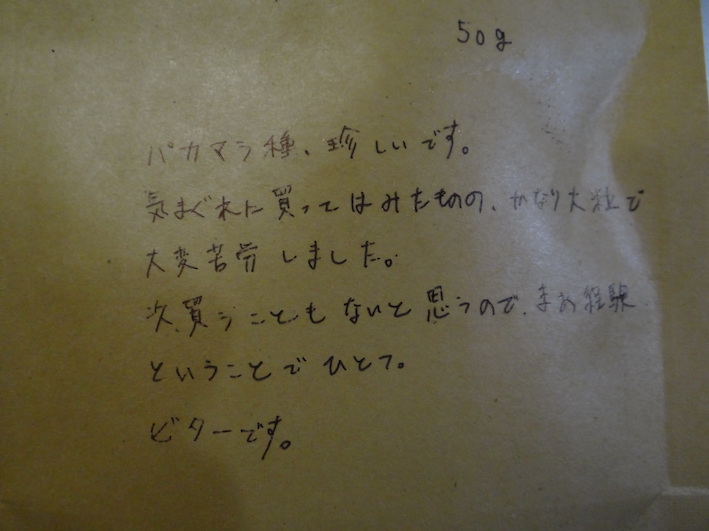 50g
パカマラ種、珍しいです。
気まぐれに買ってはみたものの、かなり大粒で
大変苦労しました。
次、買うこともないと思うので、まあ経験
ということでひとつ。
ビターです。